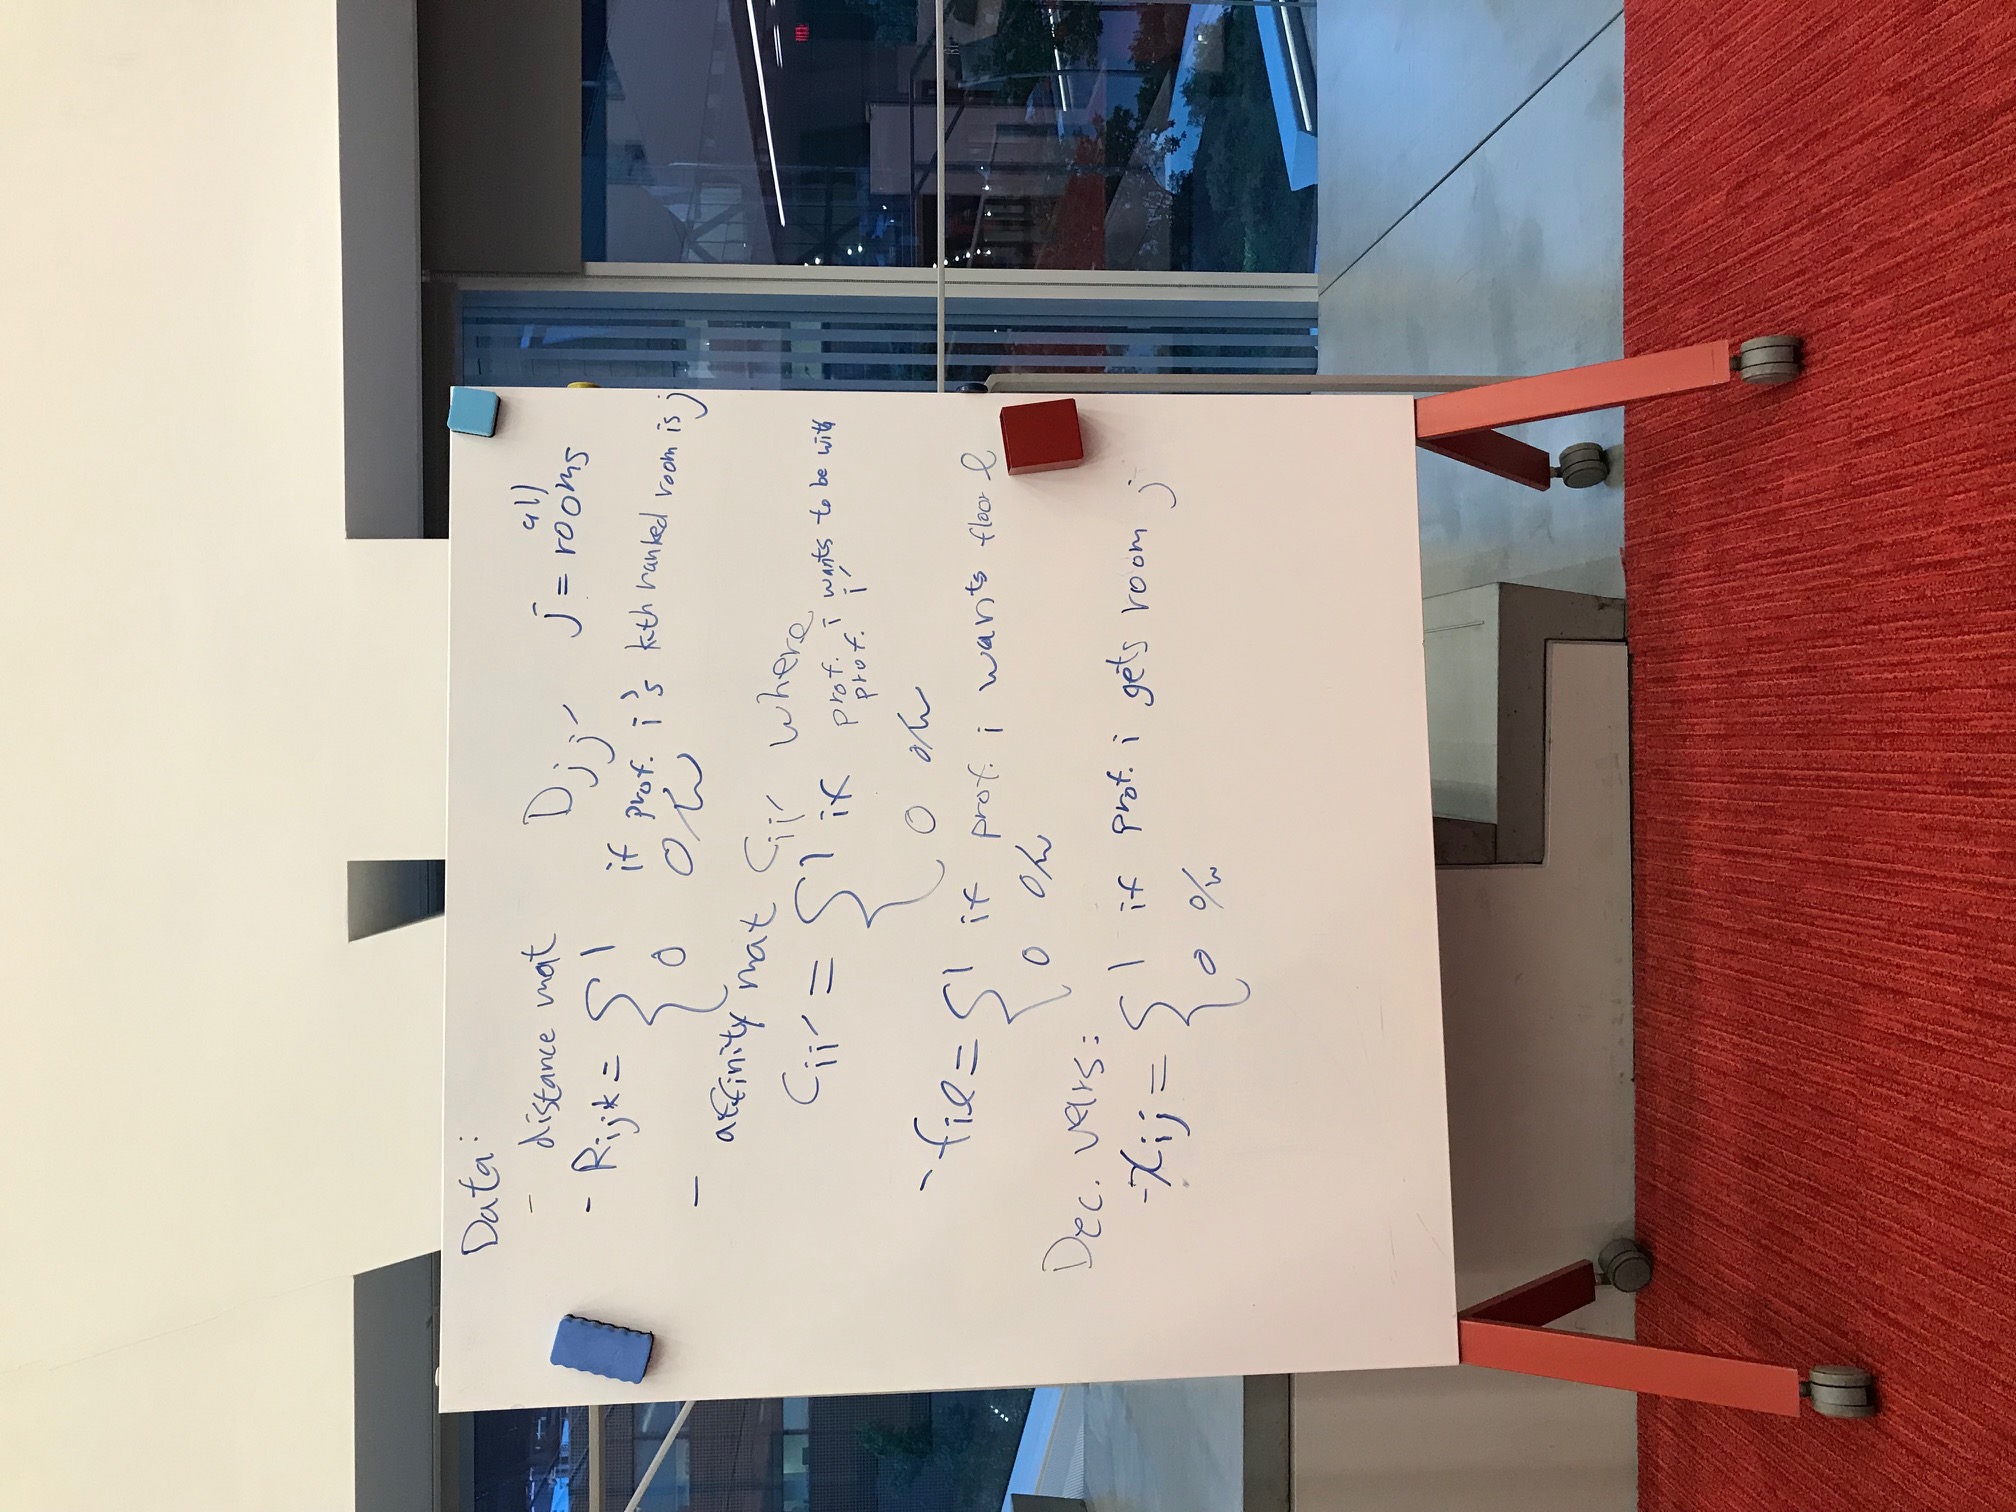 Data:
- distance mat D_{jj'} j = all rooms
- R_{ijk} = { 1 if prof. i's kth ranked room is j
0 o/w
- affinity mat C_{ii'} where
C_{ii'} = { 1 if prof. i wants to be with
prof. i'
0 o/w
- f_{il} = { 1 if prof. i wants floor l
0 o/w
Dec. vars:
- x_{ij} = { 1 if prof. i gets room j
0 o/w